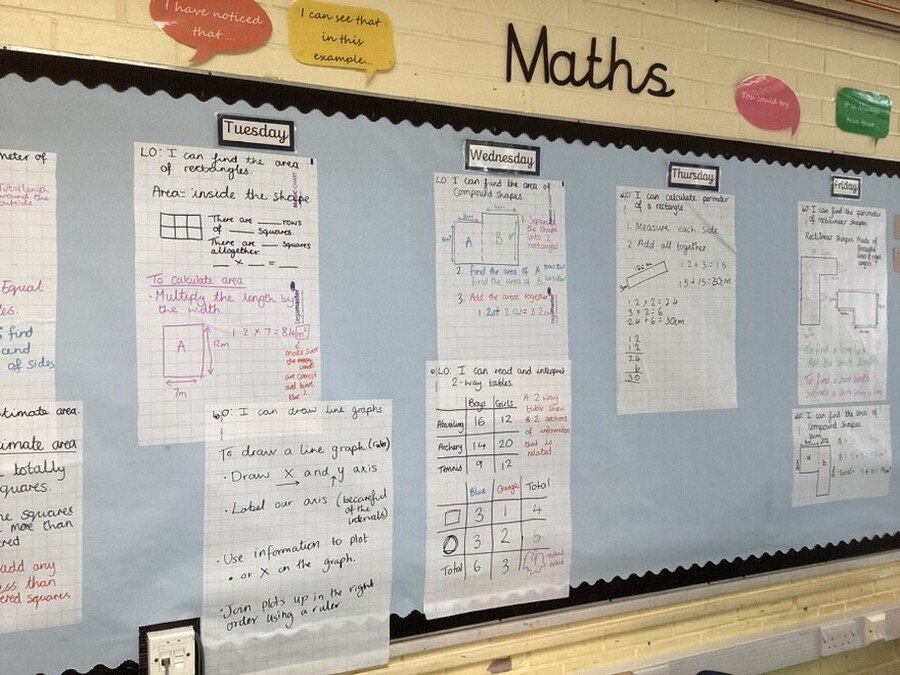 I have noticed
that ...
I can see that
in this
example...
Maths
You could try...
It is always
true that
Tuesday
Wednesday
Thursday
Friday
meter of
Total length
around the
outside
Equal
find
and
of sides
estimate area.
imate area
totally
squares.
squares
more than
add any
less than
squares
LO: I can find the area
of rectangles.
Area: inside the shape
There are ___ rows
of ___ squares.
There are ___ squares
alltogether.
__ x __ = __
To calculate area
· Multiply the length by
the width.
A
12m
7m
12 x 7 = 84m²
make sure
are correct
and have
the 2
LO: I can draw line graphs
To draw a line graph (ruler)
· Draw X and y axis
· Label our axis (becareful
of the
intervals)
· Use information to plot
• or X on the graph.
· Join plots up in the right
order using a ruler
LO: I can find the area of
Compound shapes
A
B
1. Separate
the shape
into 2
rectangles
2. find the area of A
find the area of B
3. Add the areas together
LO: I can read and interpret
2-way tables.
Boys Girls
Abseiling 16 12
Archery 14 20
Tennis 9 12
A 2 way
table shows
2 sections
of information
that is
related
Blue Orange Total
3 1 4
3 2 5
Total 6 3 9
LO I can calculate perimeter
of a rectangle
1. Measure each side
2 Add all together
12cm
3cm
12 + 3 = 15
15 + 15 = 30cm
12 x 2 = 24
3 x 2 = 6
24 + 6 = 30cm
12
12
24
6
30
LO I can find the perimeter
of rectilinear shapes
Rectilinear shapes Made of
Straight
lines & right
angles
To find a long side
Add the short lengths
To find a short length
Subtract
LO I can find the area of
Compound shapes
a
b
A
B
Total